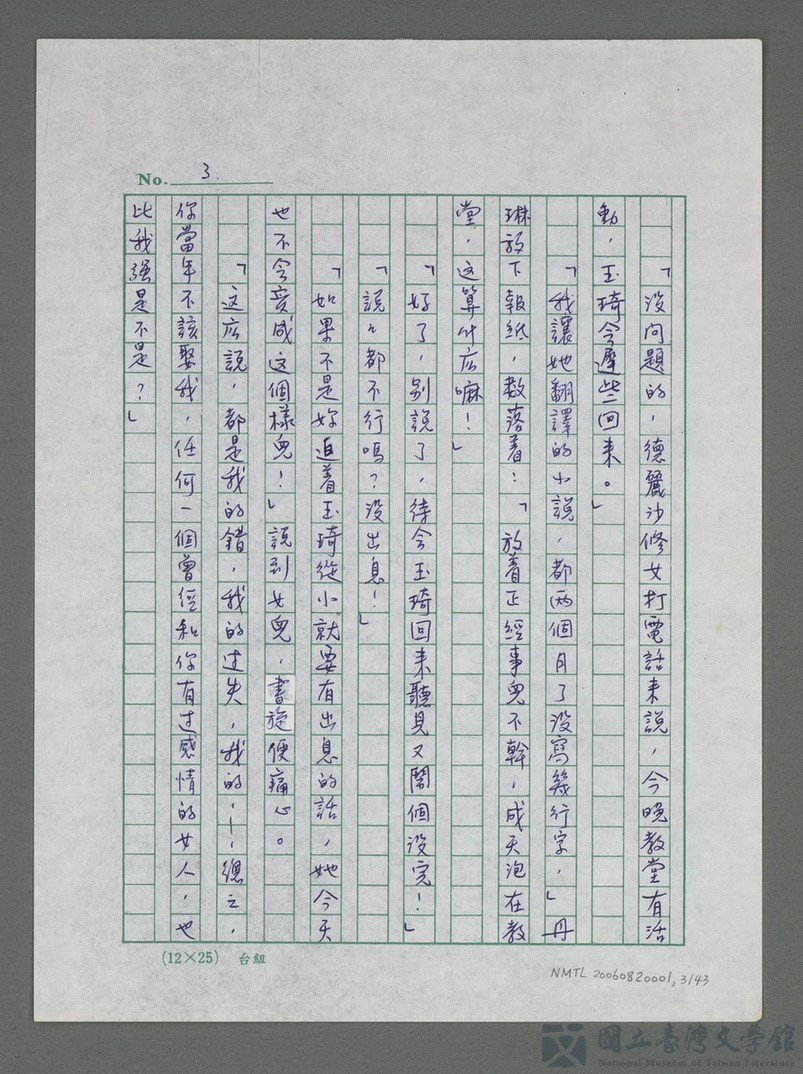 No. 3.
「没问題的,德麗沙修女打電話来說,今晚教堂有活
動,玉琦会遲些回来。」
「我讓她翻譯的小說,都两個月了没寫幾行字,」丹
琳放下報纸,数落着:「放着正經事皃不幹,成天泡在教
堂,这算什広嘛!」
「好了,别說了,待会玉琦回来聽見又鬧個没完!」
「說々都不行嗎?没出息!」
「如果不是妳迫着玉琦從小就要有出息的話,她今天
也不会变成这個樣皃!」說到女皃,書旋便痛心。
「这広說,都是我的錯,我的过失,我的,!總之,
你當年不該娶我,任何一個曾经和你有过感情的女人,也
比我强是不是?」
(12×25) 台紐
NMTL 20060820001, 3/43
國立臺灣文學館
National Museum of Taiwan Literature